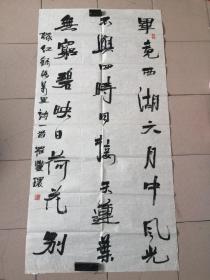 畢竟西湖六月中风光
不與四時同接天蓮葉
無窮碧映日荷花別
樣紅